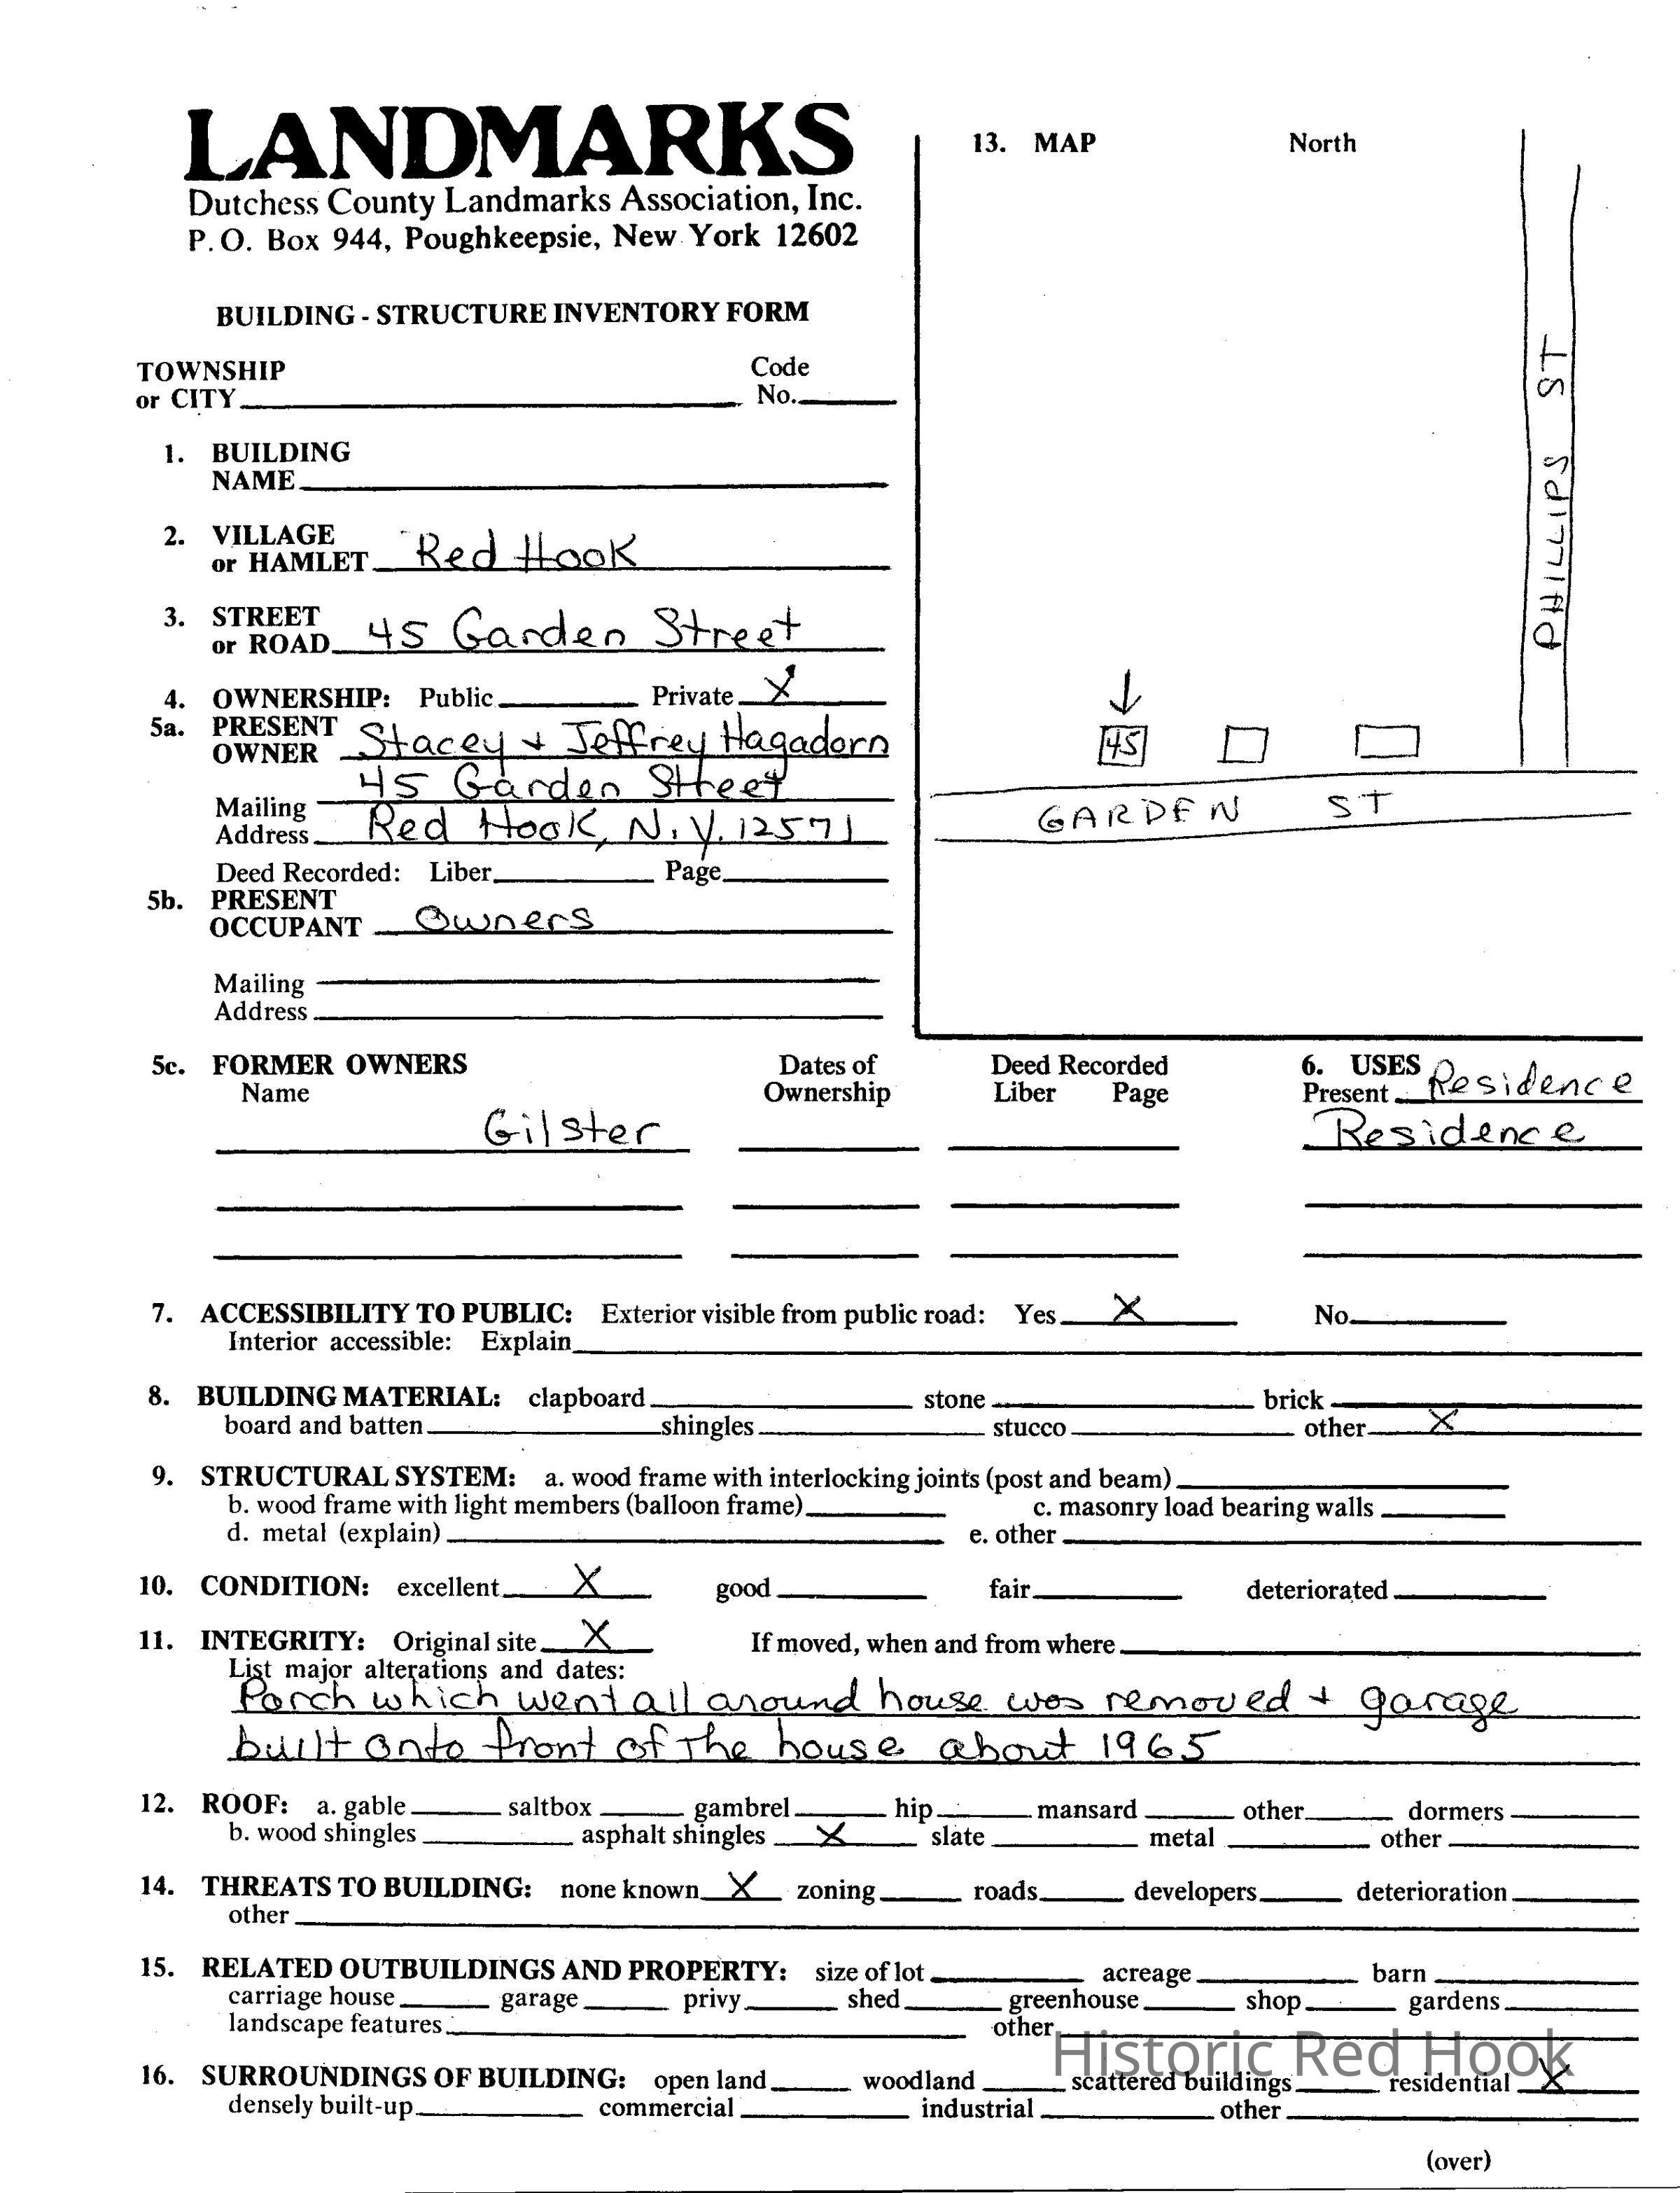 LANDMARKS
Dutchess County Landmarks Association, Inc.
P.O. Box 944, Poughkeepsie, New York 12602
BUILDING - STRUCTURE INVENTORY FORM
TOWNSHIP Code
or CITY No.
1. BUILDING
NAME
2. VILLAGE
or HAMLET Red Hook
3. STREET
or ROAD 45 Garden Street
4. OWNERSHIP: Public Private X
5a. PRESENT
OWNER Stacey + Jeffrey Hagadorn
45 Garden Street
Mailing
Address Red Hook, N.Y. 12571
Deed Recorded: Liber Page
5b. PRESENT
OCCUPANT Owners
Mailing
Address
13. MAP North
PHILLIPS ST
45
GARDEN ST
5c. FORMER OWNERS Dates of Deed Recorded 6. USES
Name Ownership Liber Page Present Residence
Gilster Residence
7. ACCESSIBILITY TO PUBLIC: Exterior visible from public road: Yes X No
Interior accessible: Explain
8. BUILDING MATERIAL: clapboard stone brick
board and batten shingles stucco other X
9. STRUCTURAL SYSTEM: a. wood frame with interlocking joints (post and beam)
b. wood frame with light members (balloon frame) c. masonry load bearing walls
d. metal (explain) e. other
10. CONDITION: excellent X good fair deteriorated
11. INTEGRITY: Original site X If moved, when and from where
List major alterations and dates:
Porch which went all around house was removed + garage
built onto front of the house about 1965
12. ROOF: a. gable saltbox gambrel hip mansard other dormers
b. wood shingles asphalt shingles X slate metal other
14. THREATS TO BUILDING: none known X zoning roads developers deterioration
other
15. RELATED OUTBUILDINGS AND PROPERTY: size of lot acreage barn
carriage house garage privy shed greenhouse shop gardens
landscape features other
Historic Red Hook
16. SURROUNDINGS OF BUILDING: open land woodland scattered buildings residential X
densely built-up commercial industrial other
(over)